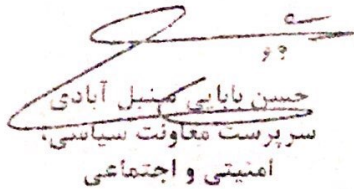 حسن بابایی منبل آبادی
سرپرست معاونت سیاسی،
امنیتی و اجتماعی